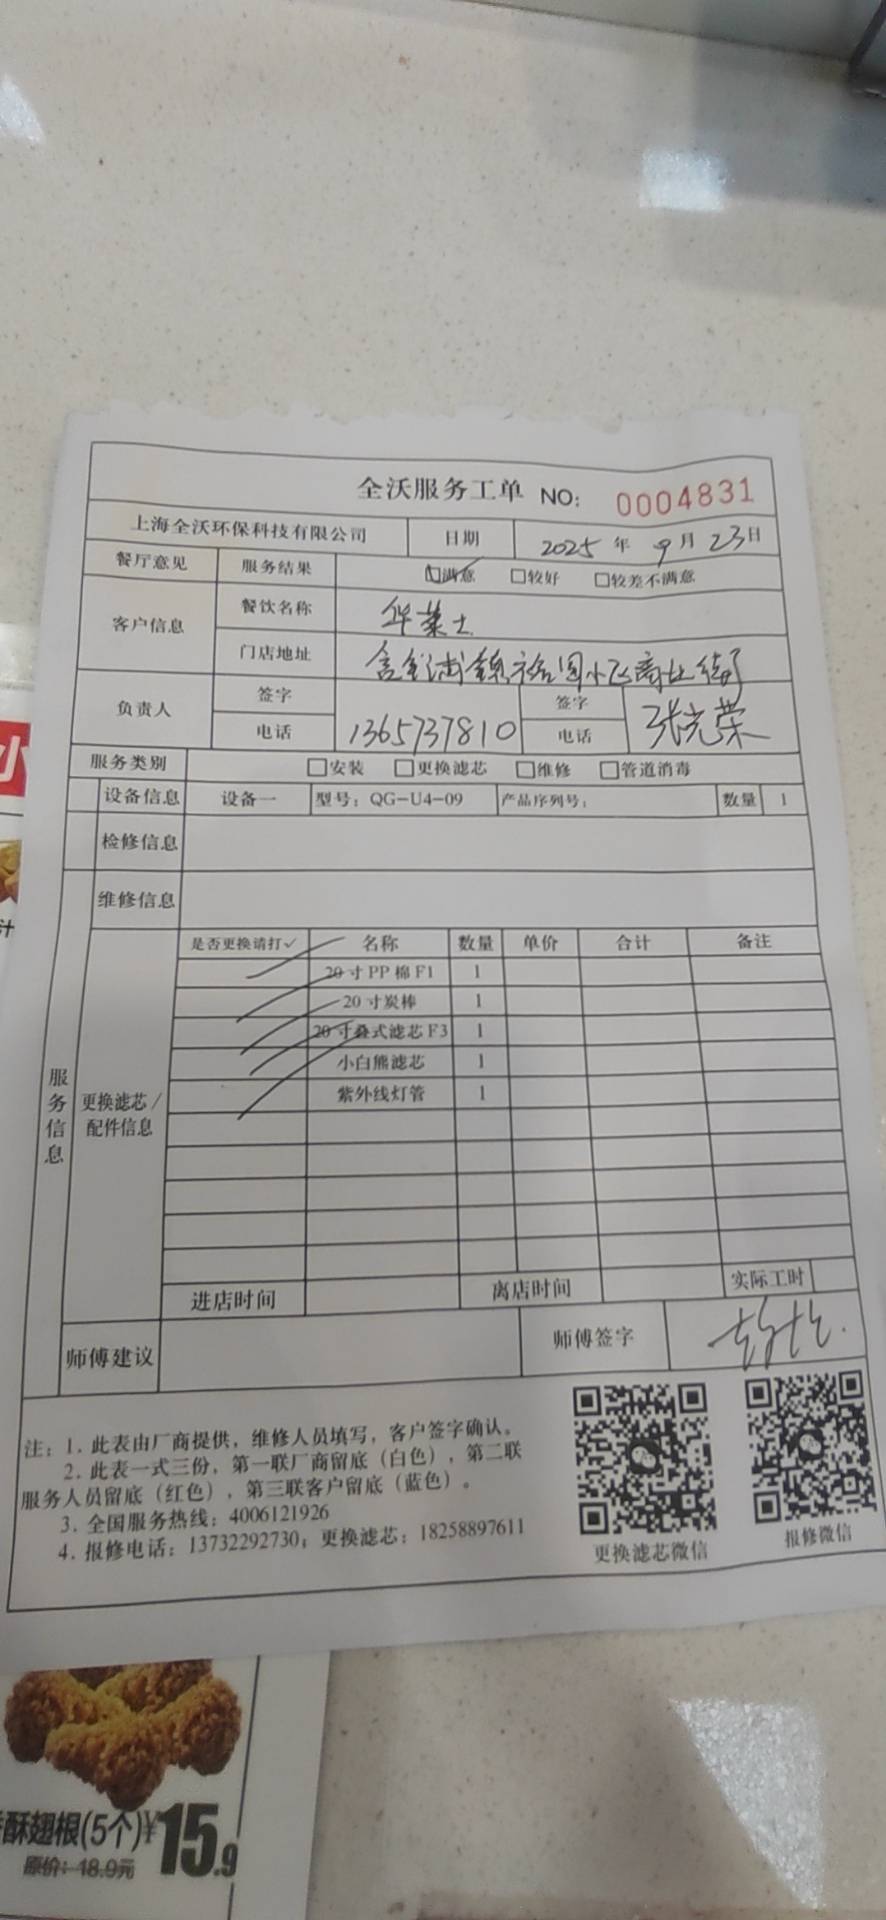 全沃服务工单 NO: 0004831
上海全沃环保科技有限公司 日期 2025 年 9 月 23 日
餐厅意见 服务结果 ☑满意 □较好 □较差不满意
客户信息 餐饮名称 华莱士
门店地址 小区商业街
负责人 签字 签字 张光荣
电话 1365737810 电话
服务类别 □安装 □更换滤芯 □维修 □管道消毒
设备信息 设备一 型号: QG-U4-09 产品序列号: 数量 1
检修信息
维修信息
服务信息
更换滤芯/配件信息
是否更换请打✓ 名称 数量 单价 合计 备注
20寸PP棉F1 1
20寸炭棒 1
20寸叠式滤芯F3 1
小白熊滤芯 1
紫外线灯管 1
进店时间 离店时间 实际工时
师傅建议 师傅签字
注: 1. 此表由厂商提供, 维修人员填写, 客户签字确认。
2. 此表一式三份, 第一联厂商留底 (白色), 第二联
服务人员留底 (红色), 第三联客户留底 (蓝色)。
3. 全国服务热线: 4006121926
4. 报修电话: 13732292730; 更换滤芯: 18258897611
更换滤芯微信 报修微信
小
汁
酥翅根(5个) ¥15.9
原价: 18.9元